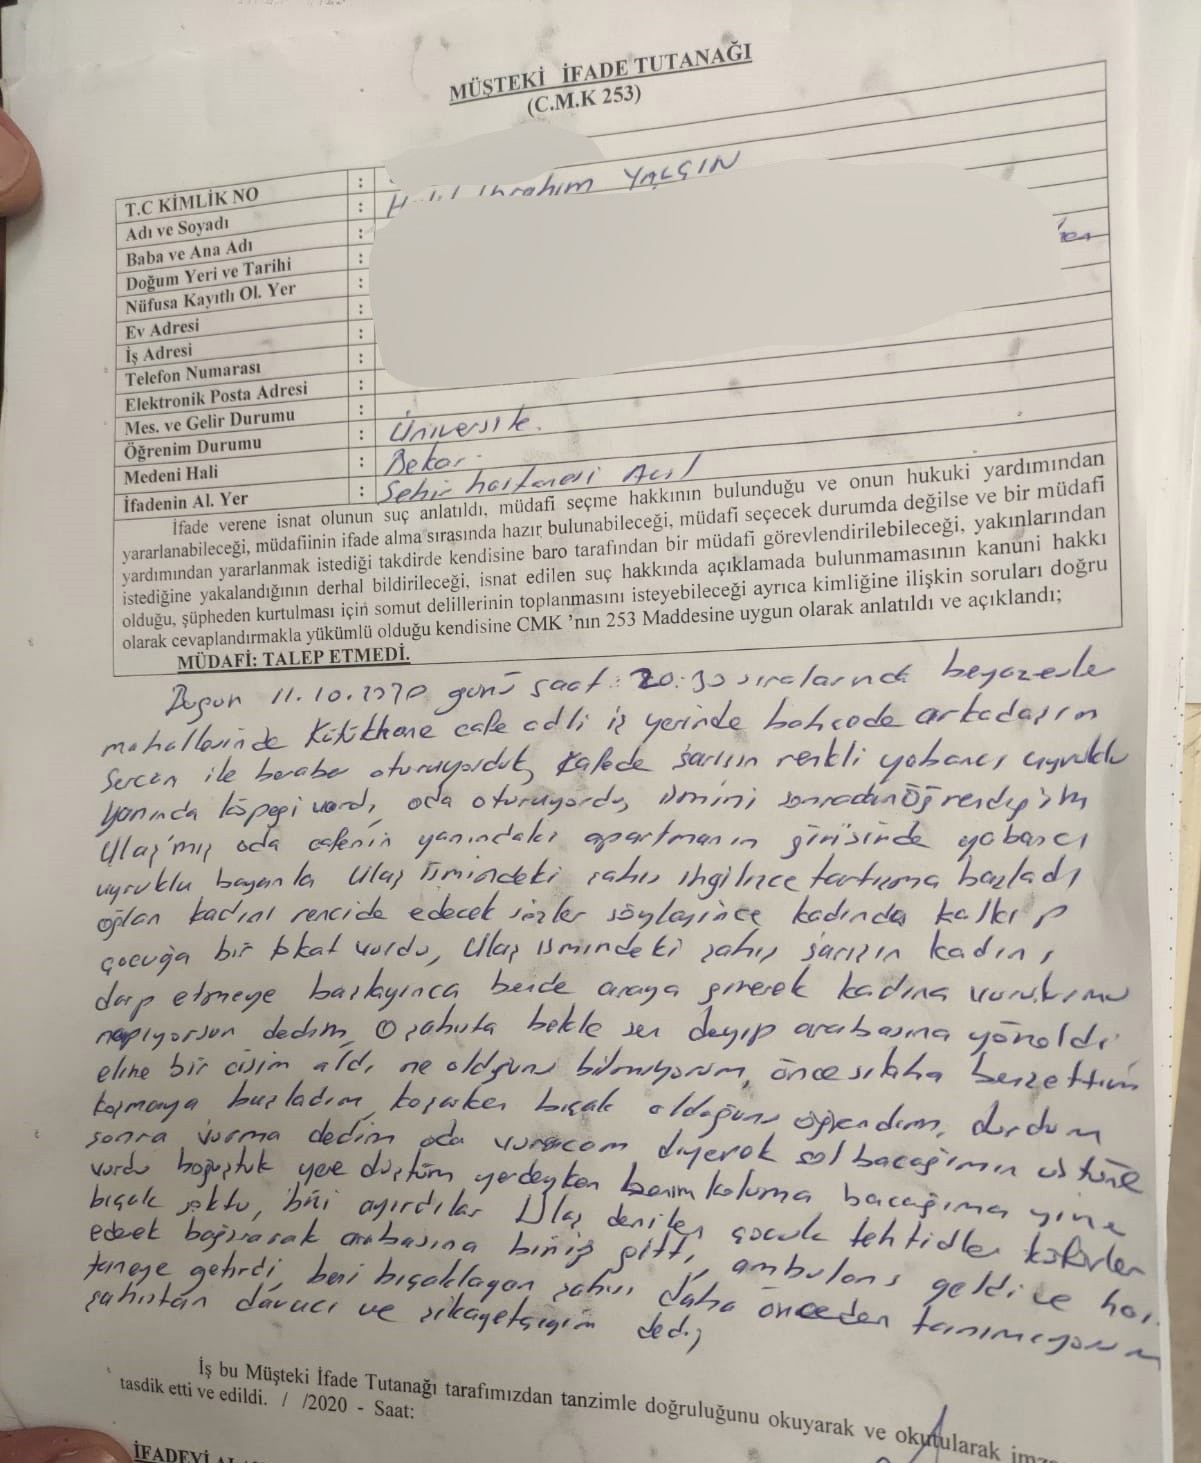 MÜŞTEKİ İFADE TUTANAĞI
(C.M.K 253)
T.C KİMLİK NO :
Adı ve Soyadı : İbrahim YALÇIN
Baba ve Ana Adı :
Doğum Yeri ve Tarihi :
Nüfusa Kayıtlı Ol. Yer :
Ev Adresi :
İş Adresi :
Telefon Numarası :
Elektronik Posta Adresi :
Mes. ve Gelir Durumu :
Öğrenim Durumu : Üniversite.
Medeni Hali : Bekar.
İfadenin Al. Yer : Şehir hastanesi Acil
İfade verene isnat olunun suç anlatıldı, müdafi seçme hakkının bulunduğu ve onun hukuki yardımından
yararlanabileceği, müdafiinin ifade alma sırasında hazır bulunabileceği, müdafi seçecek durumda değilse ve bir müdafi
yardımından yararlanmak istediği takdirde kendisine baro tarafından bir müdafi görevlendirilebileceği, yakınlarından
istediğine yakalandığının derhal bildirileceği, isnat edilen suç hakkında açıklamada bulunmamasının kanuni hakkı
olduğu, şüpheden kurtulması için somut delillerinin toplanmasını isteyebileceği ayrıca kimliğine ilişkin soruları doğru
olarak cevaplandırmakla yükümlü olduğu kendisine CMK 'nın 253 Maddesine uygun olarak anlatıldı ve açıklandı;
MÜDAFİ: TALEP ETMEDİ.
Bugün 11.10.2020 günü saat: 20:30 sıralarında beyazevle
mahallesinde Kütükhane cafe adlı iş yerinde bahçede arkadaşım
Sercan ile beraber oturuyorduk, Kafede sarışın renkli yabancı uyruklu
yanında köpeği vardı, oda oturuyordu, ismini sonradan öğrendiğim
Ulaş'mış oda cafenin yanındaki apartmanın girişinde yabancı
uyruklu bayanla Ulaş ismindeki şahıs ingilizce tartışma başladı
oğlan kadını rencide edecek sözler söyleyince kadında kalkıp
çocuğa bir tokat vurdu, Ulaş ismindeki şahıs sarışın kadını
darp etmeye başlayınca bende araya girerek kadına vurulurmu
napıyorsun dedim, O şahısta bekle sen deyip arabasına yöneldi
eline bir cisim aldı ne olduğunu bilmiyorum, önce silaha benzettim
koşmaya başladım, koşarken bıçak olduğunu öğrendim, durdum
sonra vurma dedim oda vuracam diyerek sol bacağımın üstüne
vurdu boğuştuk yere düştüm yerdeyken benim koluma bacağıma yine
bıçak soktu, bizi ayırdılar Ulaş denilen çocuk tehtidler küfürler
ederek bağırarak arabasına binip gitti, ambulans geldi ve has
taneye getirdi, beni bıçaklayan şahsı daha önceden tanımıyorum
şahıstan davacı ve şikayetçiyim dedi,
İş bu Müşteki İfade Tutanağı tarafımızdan tanzimle doğruluğunu okuyarak ve okutularak imza
tasdik etti ve edildi. / /2020 - Saat:
İFADEYİ